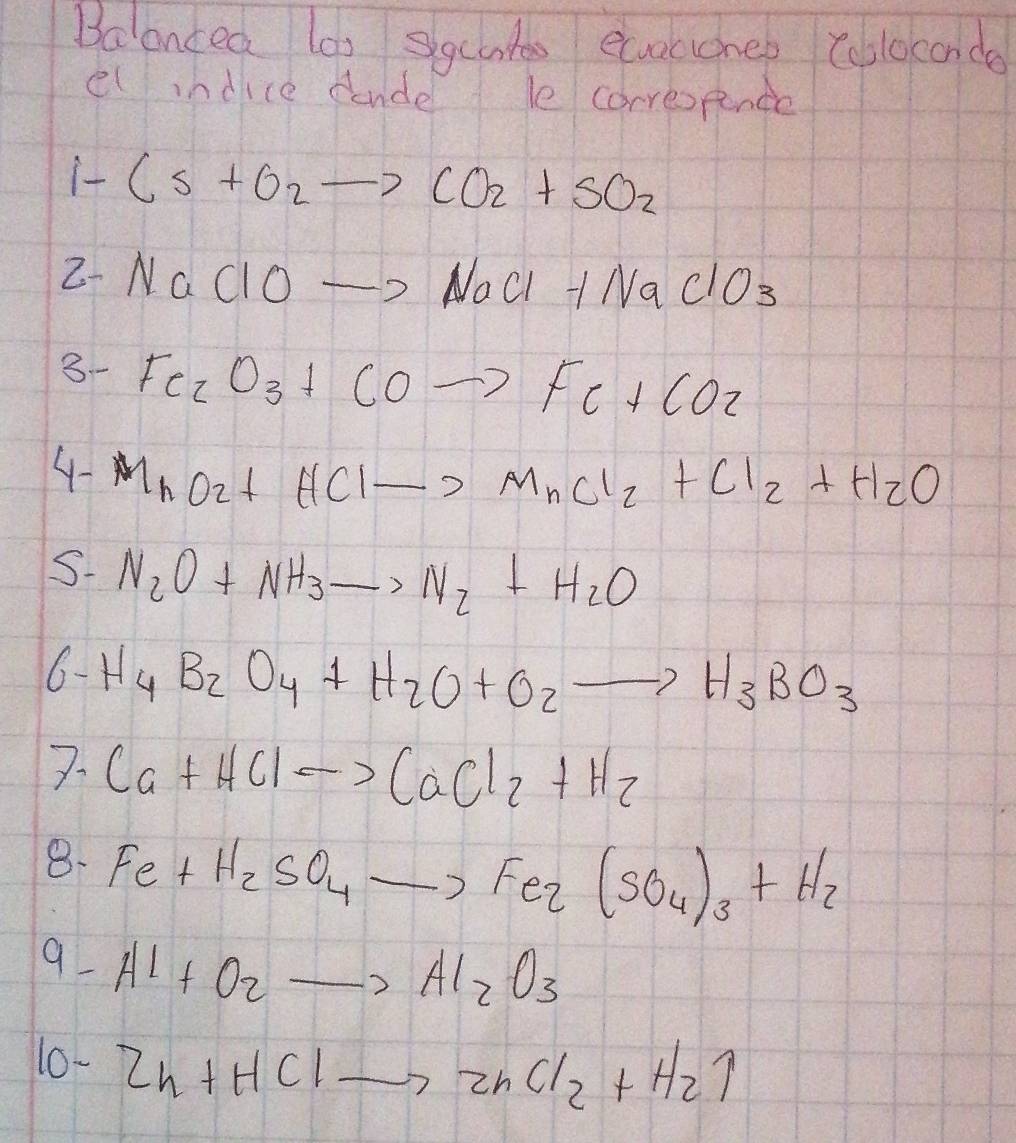 Balancea las siguientes ecuaciones colocando
el indice donde le corresponde
1- CS + O2 → CO2 + SO2
2- NaClO → NaCl + NaClO3
3- Fe2O3 + CO → Fe + CO2
4- MnO2 + HCl → MnCl2 + Cl2 + H2O
5- N2O + NH3 → N2 + H2O
6- H4B2O4 + H2O + O2 → H3BO3
7- Ca + HCl → CaCl2 + H2
8- Fe + H2SO4 → Fe2(SO4)3 + H2
9- Al + O2 → Al2O3
10- Zn + HCl → ZnCl2 + H2↑